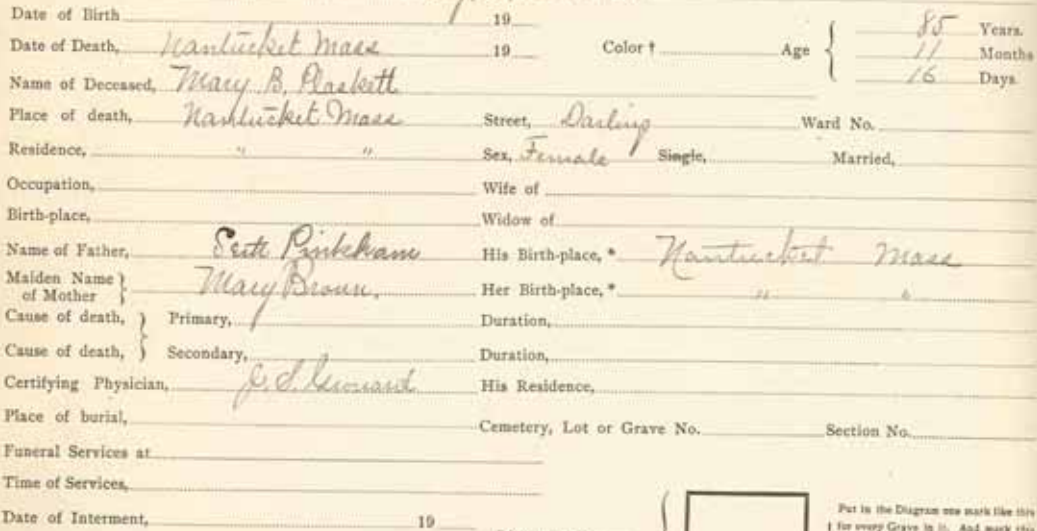 Date of Birth 19
Date of Death, Nantucket Mass 19 Color † Age { 85 Years.
11 Months
16 Days.
Name of Deceased, Mary B. Plaskett
Place of death, Nantucket Mass Street, Darling Ward No.
Residence, " " Sex, Female Single, Married,
Occupation, Wife of
Birth-place, Widow of
Name of Father, Seth Pinkham His Birth-place, * Nantucket Mass
Maiden Name of Mother } Mary Brown, Her Birth-place, * " "
Cause of death, } Primary, Duration,
Cause of death, } Secondary, Duration,
Certifying Physician, J. S. Leonard His Residence,
Place of burial, Cemetery, Lot or Grave No. Section No.
Funeral Services at
Time of Services,
Date of Interment, 19
Put in the Diagram one mark like this
| for every Grave in it. And mark this